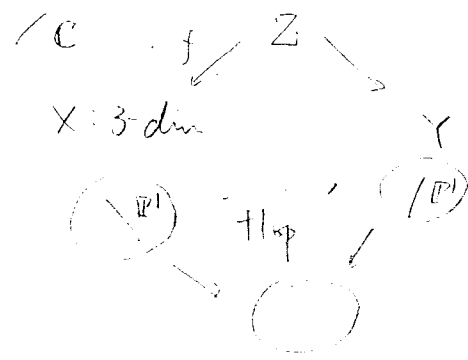 /ℂ f Z
X : 3-dim Y
ℙ¹ Flop ℙ¹